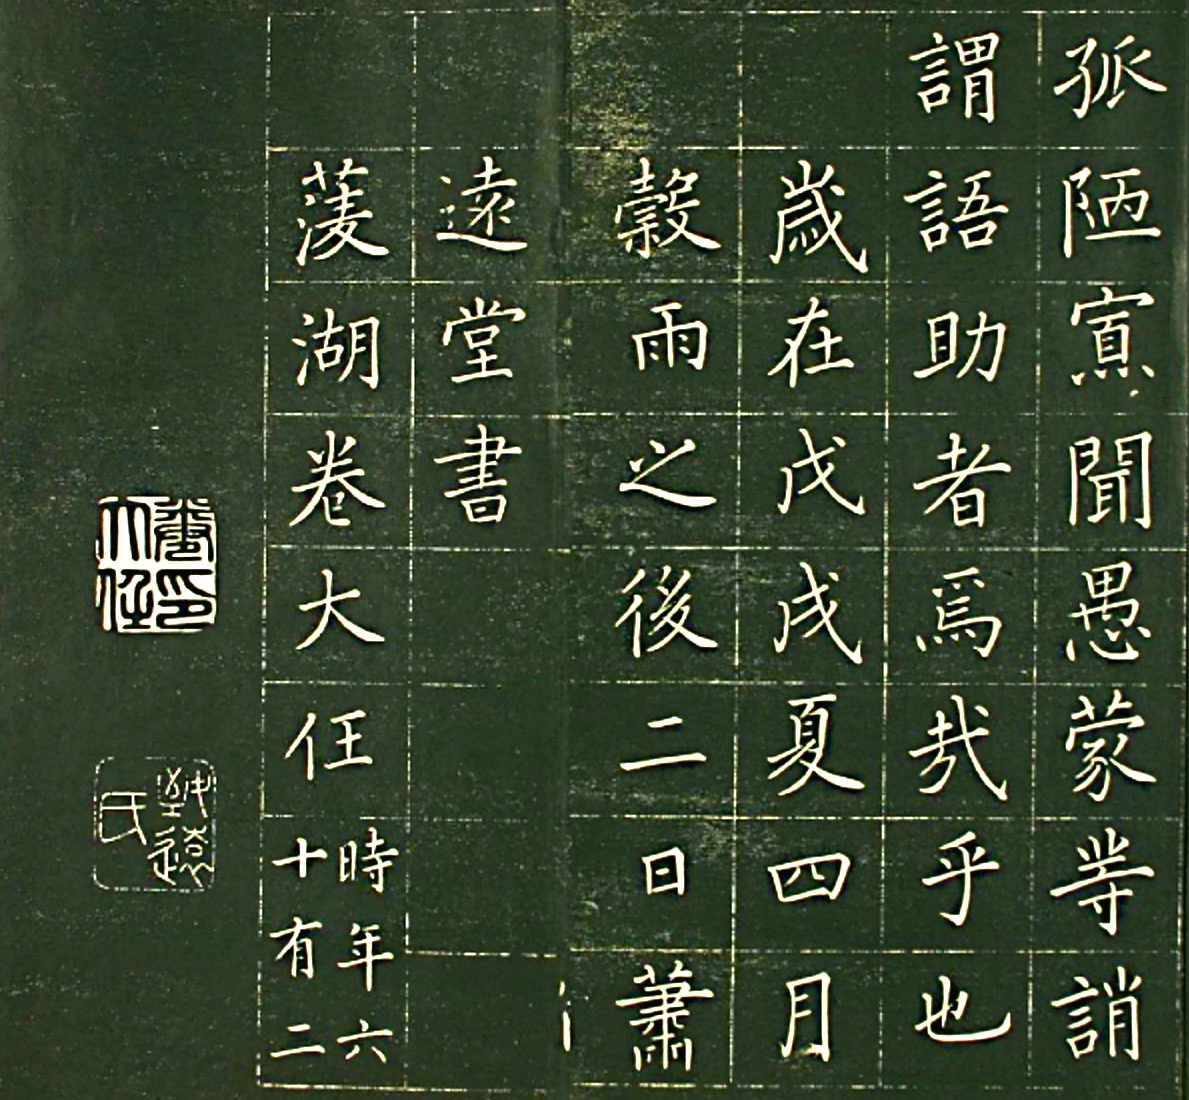 孤陋寡聞愚蒙等誚
謂語助者焉哉乎也
歲在戊戌夏四月
穀雨之後二日蕭
遠堂書
菱湖卷大任
時年六
十有二
卷印
大任
致遠
氏